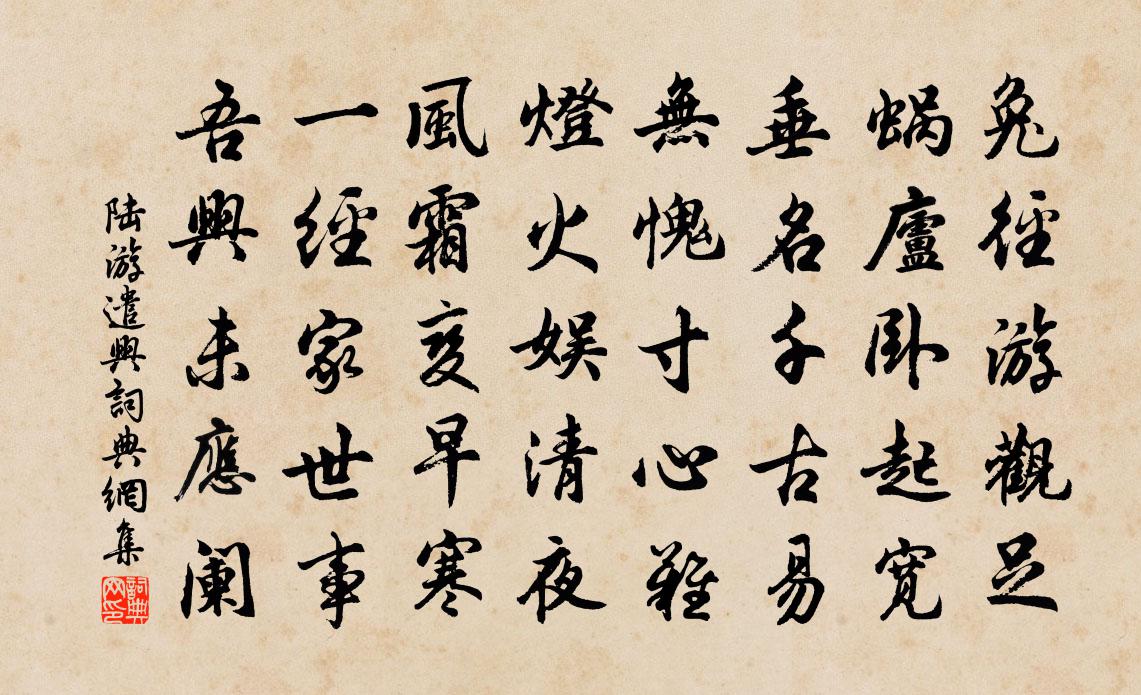 兔徑游觀足
蝸廬臥起寬
垂名千古易
無愧寸心難
燈火娛清夜
風霜變早寒
一經家世事
吾興未應闌
陆游遣興詞典網集
詞典網印